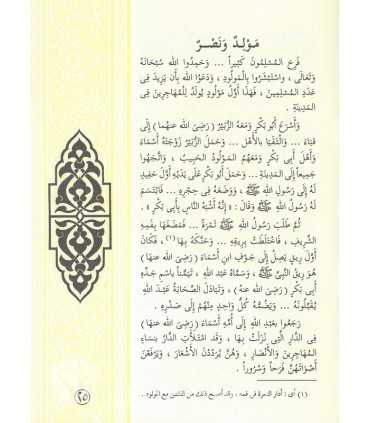 مَوْلِدٌ وَنَصْرٌ
فَرِحَ المُسْلِمُونَ كَثِيراً ... وَحَمِدُوا الله سُبْحَانَهُ
وَتَعَالَى ، وَاسْتَبْشَرُوا بِالْمَوْلُودِ ، وَدَعَوُا الله بِأَن يَزِيدَ فِى
عَدَدِ المُسْلِمِينَ ، فَهَذَا أَوَّلُ مَوْلُودٍ يُولَدُ لِلْمُهَاجِرِينَ فِى
المَدِينَةِ .
وَأَسْرَعَ أَبُو بَكْرٍ وَمَعَهُ الزُّبَيْرُ (رَضِىَ الله عنهما) إِلَى
قباءَ ... وَالْتَقَيَا بِالأَهْلِ ... وَحَمَلَ الزُّبَيْرُ زَوْجَتَهُ أَسْمَاءَ
وَأَهْلَ أَبِى بَكْرٍ وَمَعَهُم المَوْلُودُ الحَبِيبُ ، وَاتَّجَهُوا
جَمِيعاً إِلَى المَدِينَةِ ... وَحَمَلَ أَبُو بَكْرٍ عَلَى يَدَيْهِ أَوَّلَ حَفِيدٍ
لَهُ إِلَى رَسُولِ الله ﷺ ، وَوَضَعَهُ فِى حِجْرِهِ ... فَابْتَسَمَ
لَهُ رَسُولُ الله ﷺ وَقَالَ : « إِنَّهُ أَشْبَهُ النَّاسِ بِأَبِى بَكْرٍ » .
ثُمَّ طَلَبَ رَسُولُ الله ﷺ تَمْرَةً ... فَمَضَغَهَا بِفَمِهِ
الشَّرِيفِ ، فَاخْتَلَطَتْ بِرِيقِهِ ... وَحَنَّكَهُ بِهَا(١) ، فَكَانَ
أَوَّلُ رِيقٍ يَصِلُ إِلَى جَوْفِ ابنِ أَسْمَاءَ (رَضِىَ الله عنها)
هُوَ رِيقُ النَّبِىِّ ﷺ ، وَسَمَّاهُ عَبْدَ الله ، تَيَمُّناً بِاسْمِ جَدِّهِ
أَبِى بَكْرٍ (رَضِىَ الله عنهُ) ، وَتَبَادَلَ الصَّحَابَةُ عَبْدَ الله
يُقَبِّلُونَهُ ... وَيَضُمُّهُ كُلُّ وَاحِدٍ مِنْهُمْ إِلَى صَدْرِهِ .
رَجَعُوا بِعَبْدِ الله إِلَى أُمِّهِ أَسْمَاءَ (رَضِىَ الله عنها)
فِى الدَّارِ الَّتِى نَزَلَتْ بِهَا ، وَقَد امْتَلأَتِ الدَّارُ بِنِسَاءِ
المُهَاجِرِينَ وَالأَنْصَارِ ، وَهُنَّ يُرَدِّدْنَ الأَشْعَارَ ، وَيَرْفَعْنَ
أَصْوَاتَهُنَّ فَرَحاً وَسُرُوراً .
(١) أى : أدار التمرة فى فمه ، وقد أصبح ذلك من السنن مع المولود .
٢٥